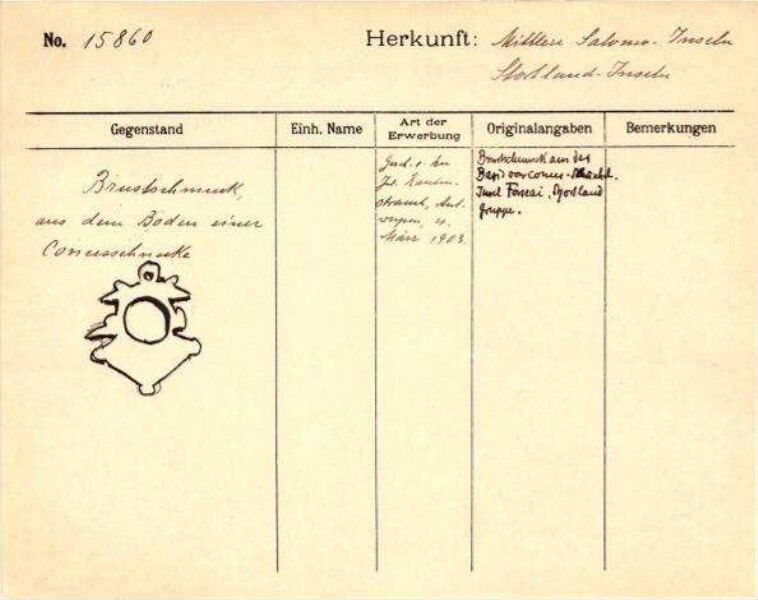 No. 15860
Herkunft: Mittlere Salomo-Inseln
Shortland-Inseln
Gegenstand
Einh. Name
Art der Erwerbung
Originalangaben
Bemerkungen
Brustschmuck,
aus dem Boden einer
Conusschnecke
Gesch. v.
Ant-
werpen, 4.
März 1903.
Brustschmuck aus der
Basis von Conus-
Insel Fauai, Shortland
gruppe.